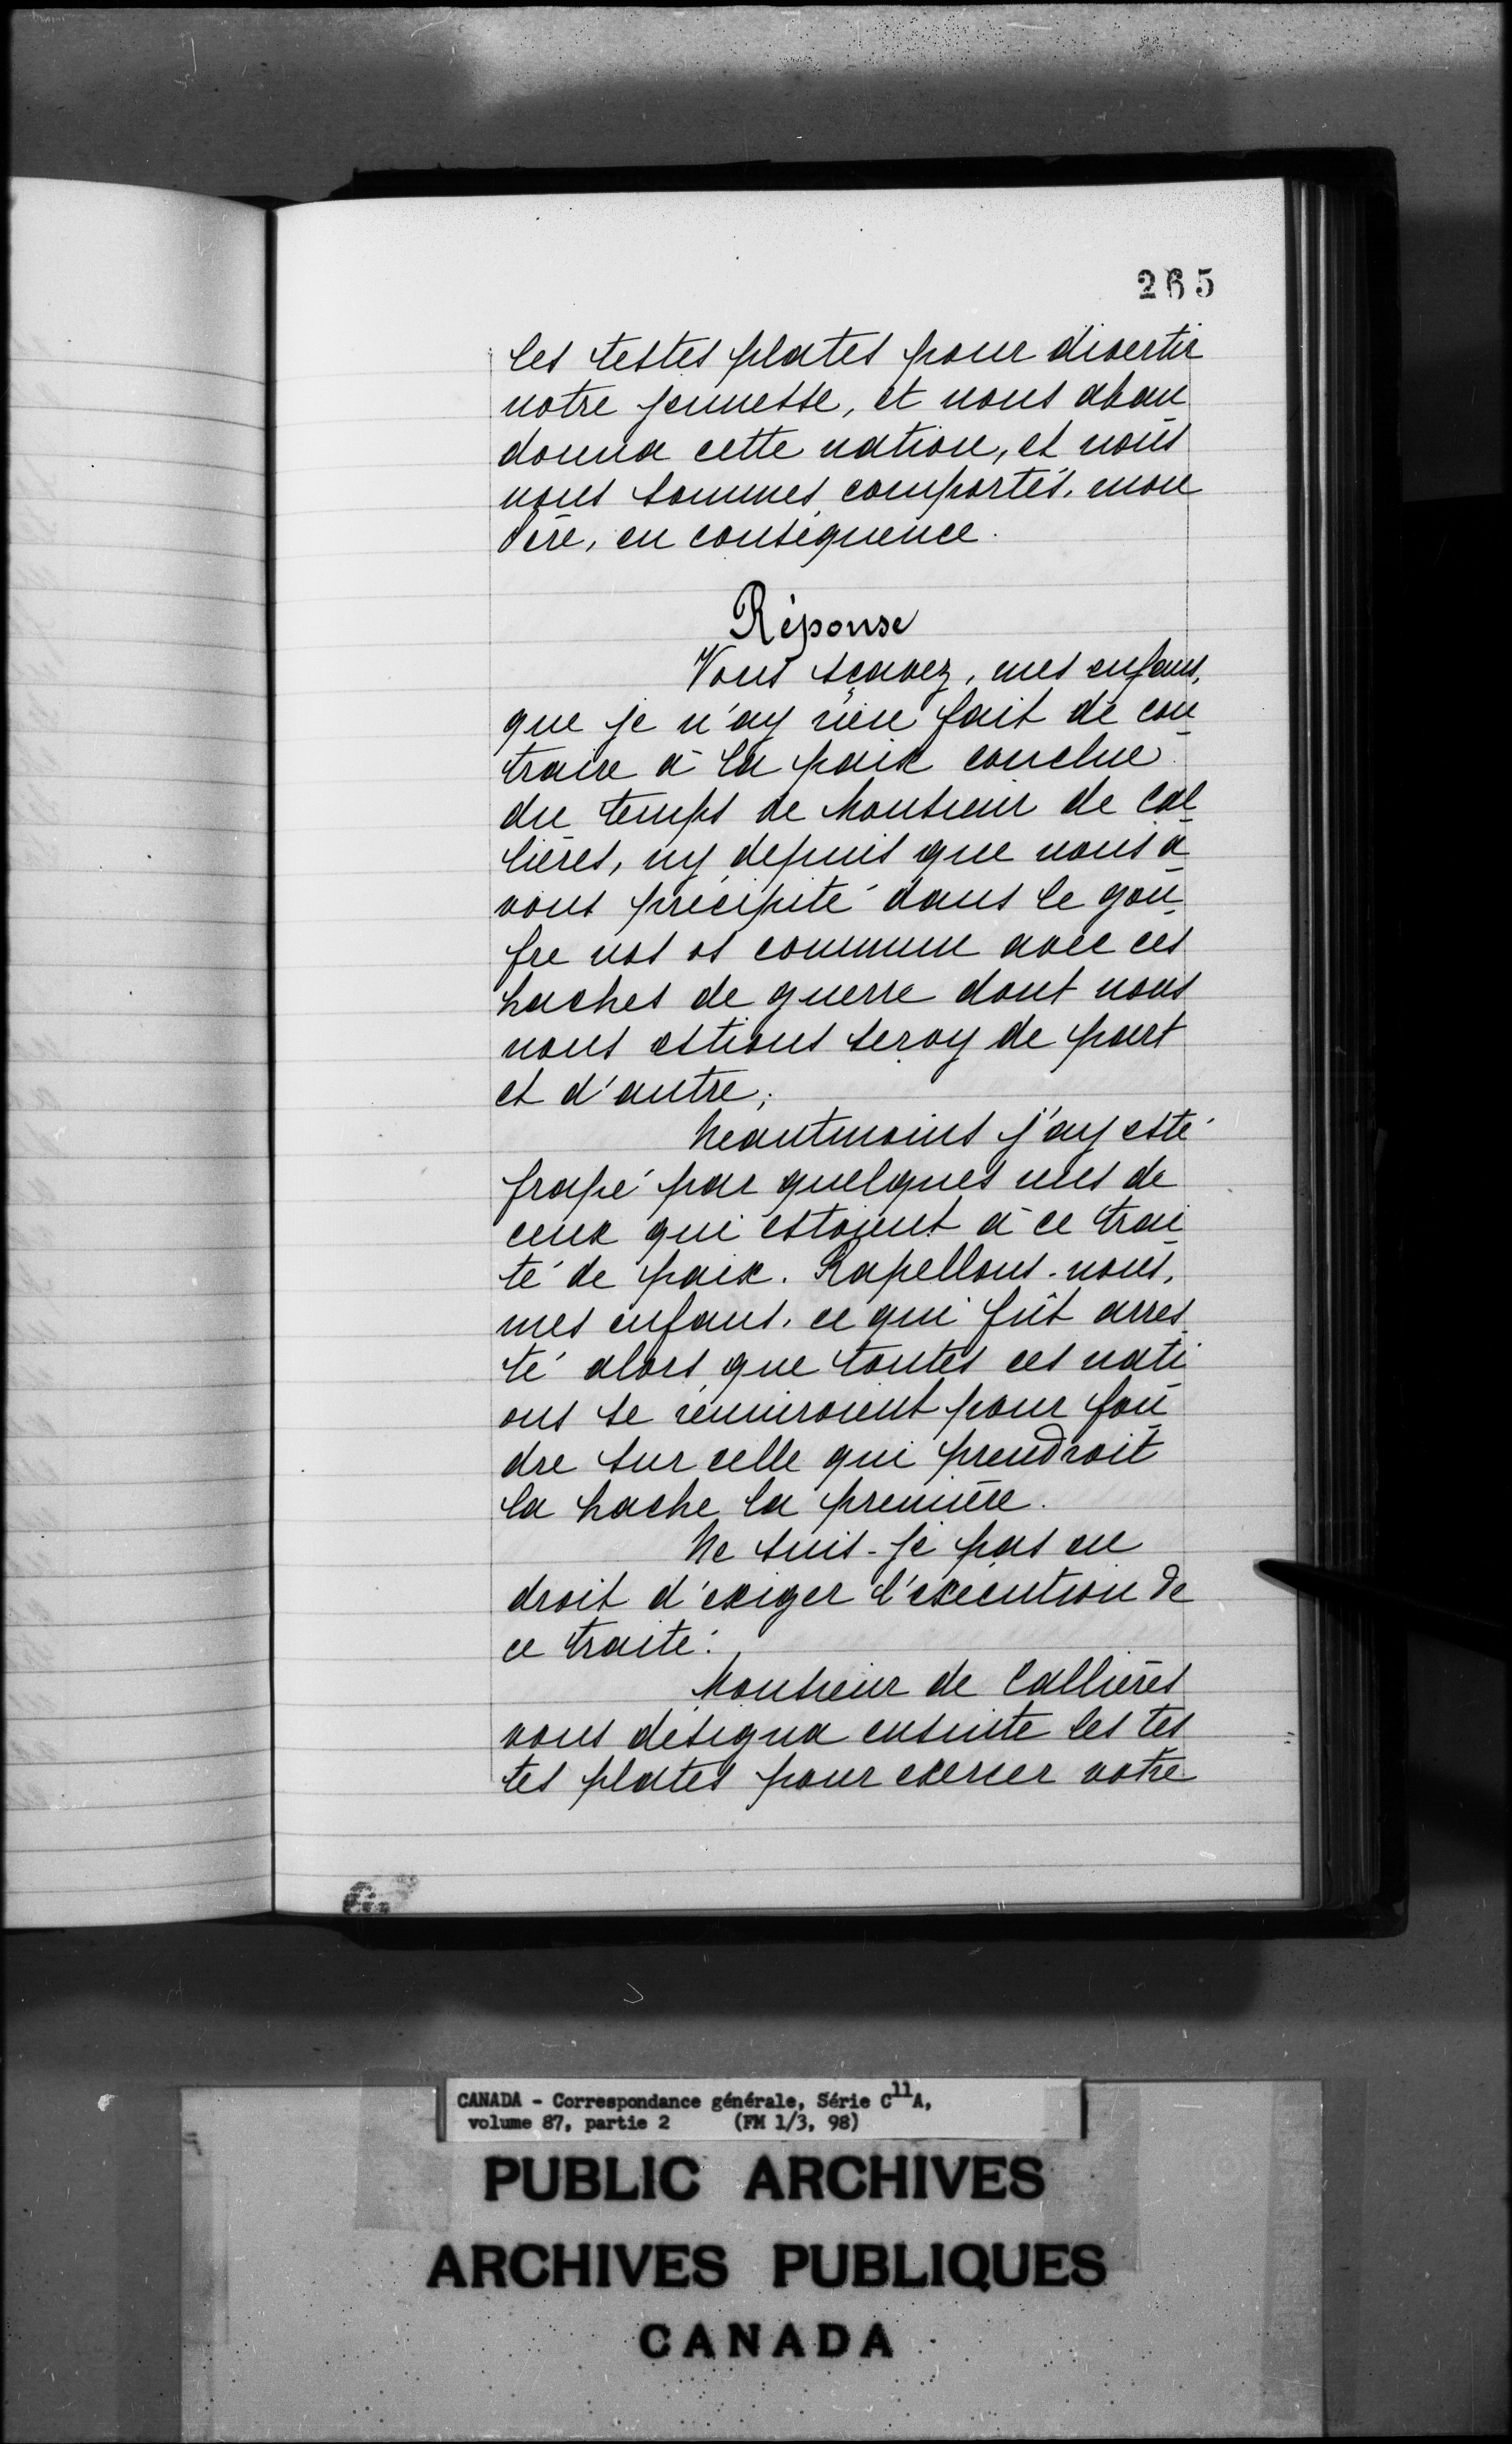 265
les testes plates pour divertir
notre jeunesse, et nous aban
donna cette nation, et nous
nous sommes comportés, mon
Père, en conséquence.
Réponse
Vous sçavez, mes enfans,
que je n'ay rien fait de con
traire à la paix conclue
du temps de Monsieur de Cal
lières, ny depuis que nous a
vons précipité dans le gou
fre nos os commun avec ces
haches de guerre dont nous
nous estions servy de part
et d'autre;
Neantmoins j'ay esté
frapé par quelques uns de
ceux qui estoient à ce trai
té de paix. Rapellons-nous,
mes enfans, ce qui fût arres
té alors que toutes ces nati
ons se réuniroient pour fon
dre sur celle qui prendroit
la hache la première.
Ne suis-je pas en
droit d'exiger l'exécution de
ce traité:
Monsieur de Callières
vous désigna ensuite les tes
tes plates pour exercer votre
CANADA - Correspondance générale, Série C11A,
volume 87, partie 2 (FM 1/3, 98)
PUBLIC ARCHIVES
ARCHIVES PUBLIQUES
CANADA